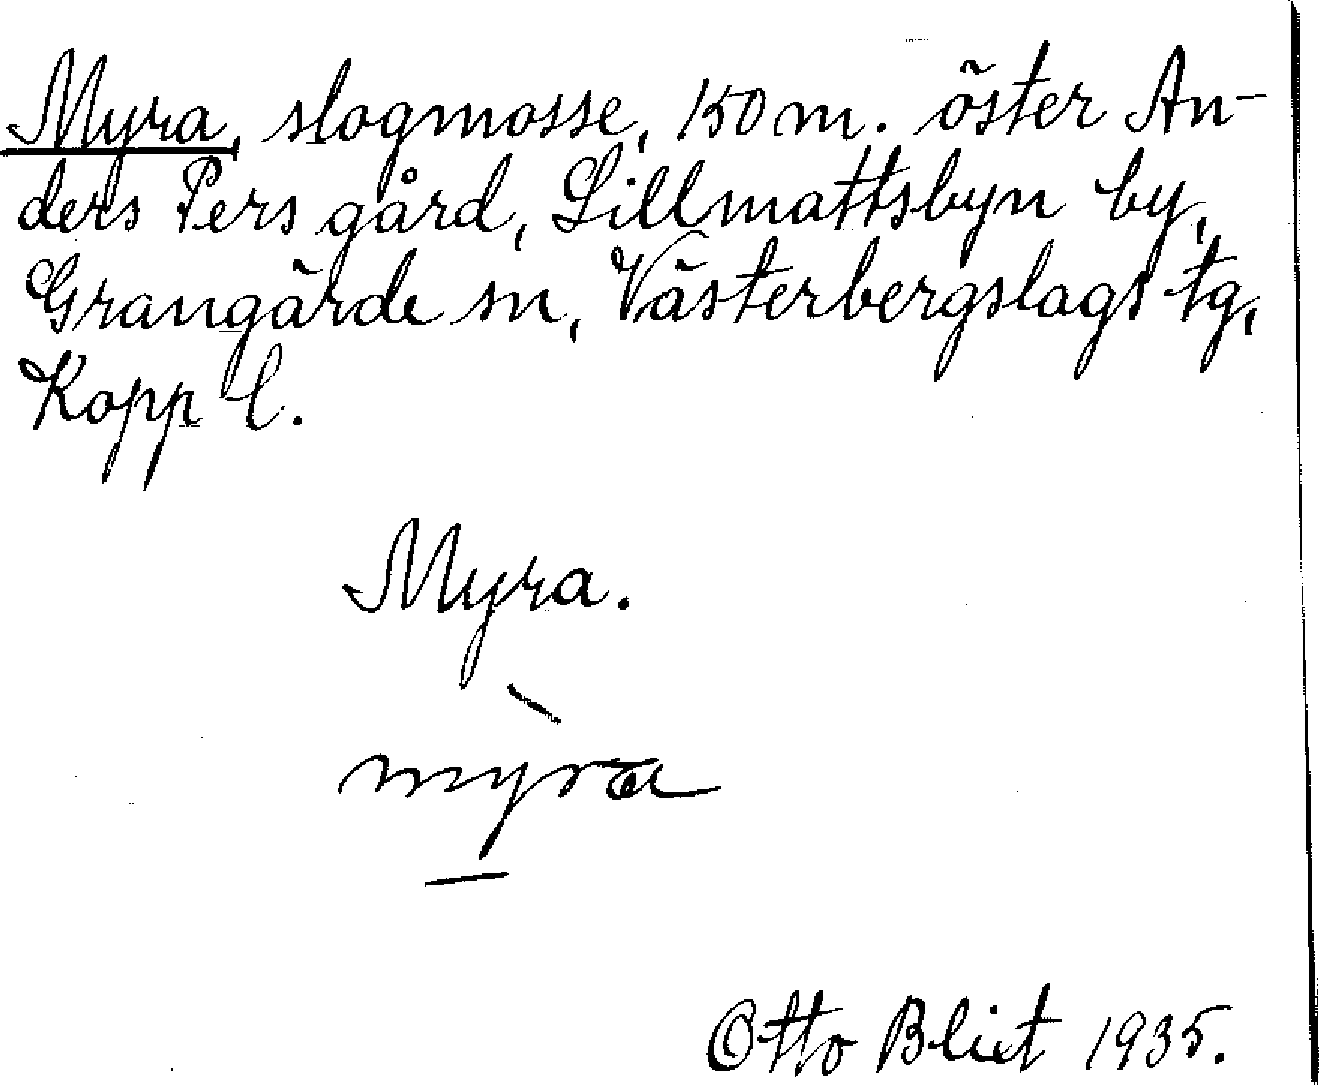 Myra, slogmosse, 150 m. öster An-
ders Pers gård, Lillmattsbyn by,
Grangärde sn, Västerbergslags tg,
Kopp l.
Myra.
myra
Otto Blixt 1935.